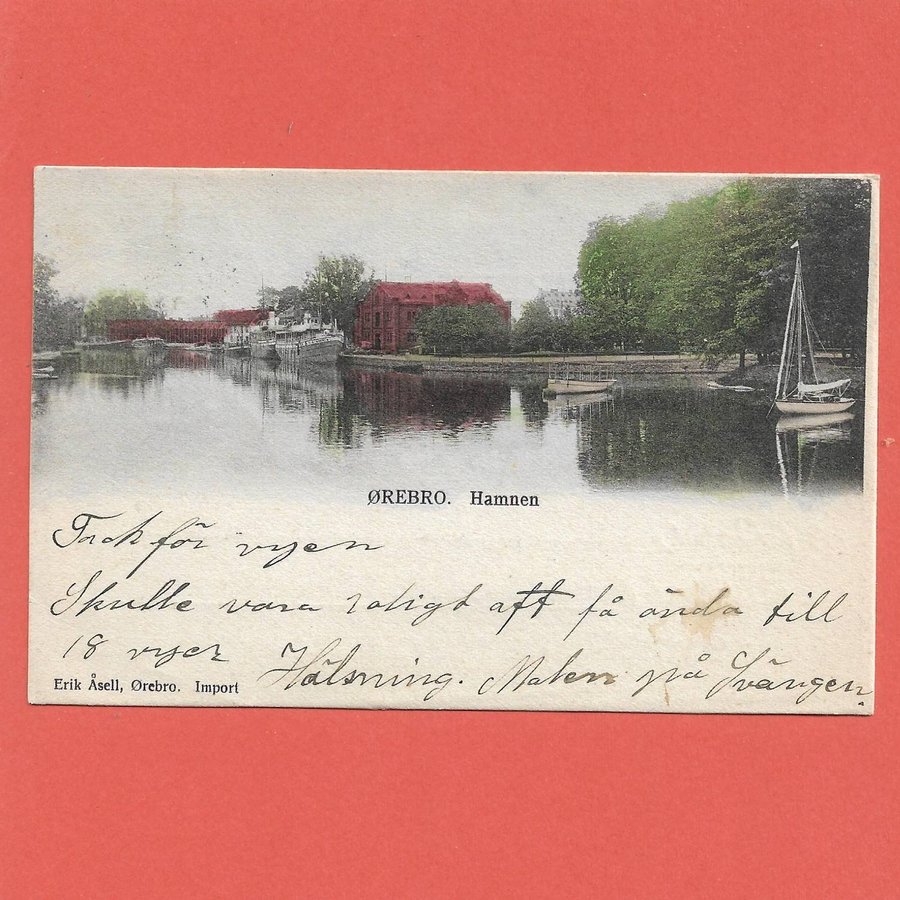 ØREBRO. Hamnen
Tack för vyen
Skulle vara roligt att få ända till
18 vyer Hälsning. Malen på Svängen.
Erik Åsell, Ørebro. Import